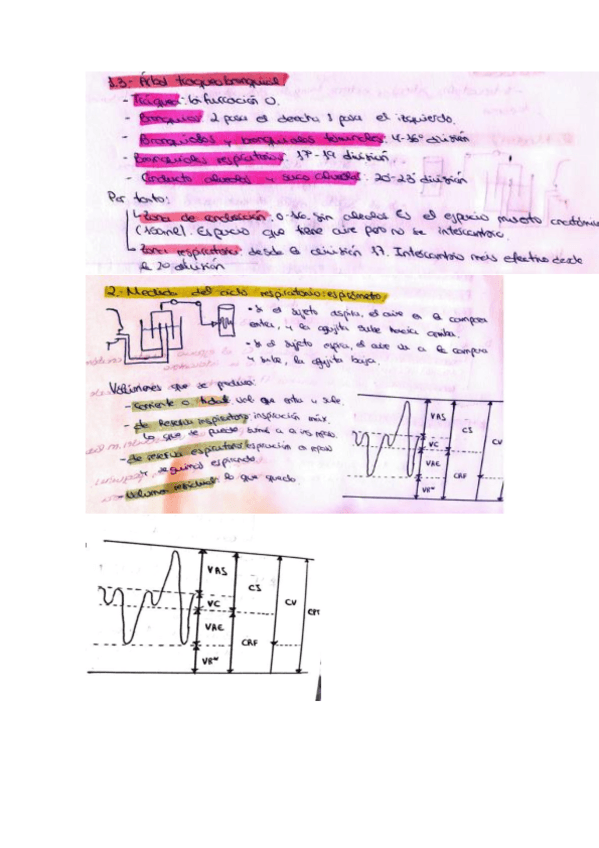 1.3.- Árbol traqueobronquial
- Tráquea: bifurcación 0.
- Bronquios: 2 para el derecho 1 para el izquierdo.
- Bronquiolos y bronquiolos terminales: 4-16º división
- Bronquiolos respiratorios: 17-19 división
- Conducto alveolar y saco alveolar: 20-23 división
Por tanto:
Zona de conducción: 0-16. Sin alveolos. Es el espacio muerto anatómico
Espacio que tiene aire pero no se intercambia.
Zona respiratoria: desde la división 17. Intercambio más efectivo desde
la 20 división
2.- Medida del ciclo respiratorio: espirómetro
- Si el sujeto aspira, el aire en la campana
entra, y la agujita sube hacia arriba.
- Si el sujeto espira, el aire va a la campana
y sube, la agujita baja.
Volúmenes que se producen:
- corriente o tidal: vol que entra y sale.
- de reserva inspiratorio: inspiración máx.
lo que se puede sumar a la
- de reserva espiratorio: espiración en reposo
y seguimos espirando
- Volumen residual: lo que queda.
VAS
CS
VC
CV
VAE
CRF
VR
VAS
CS
VC
CV
CPT
VAE
CRF
VR